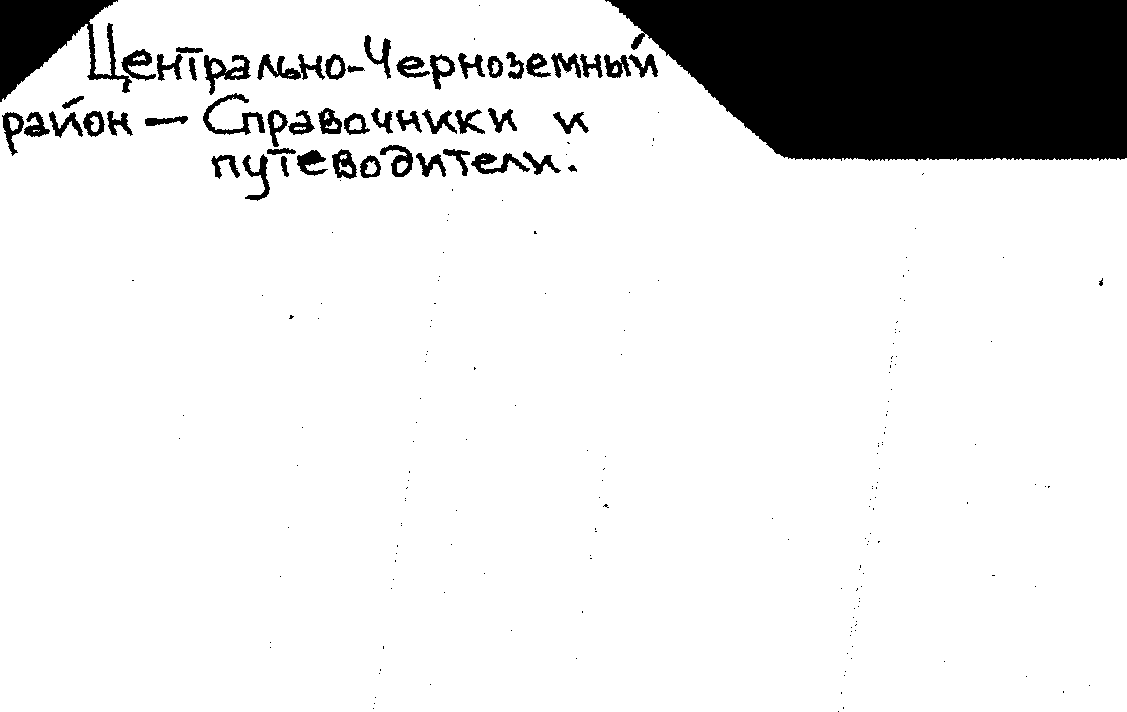 Центрально-Черноземный
район — Справочники и
путеводители.